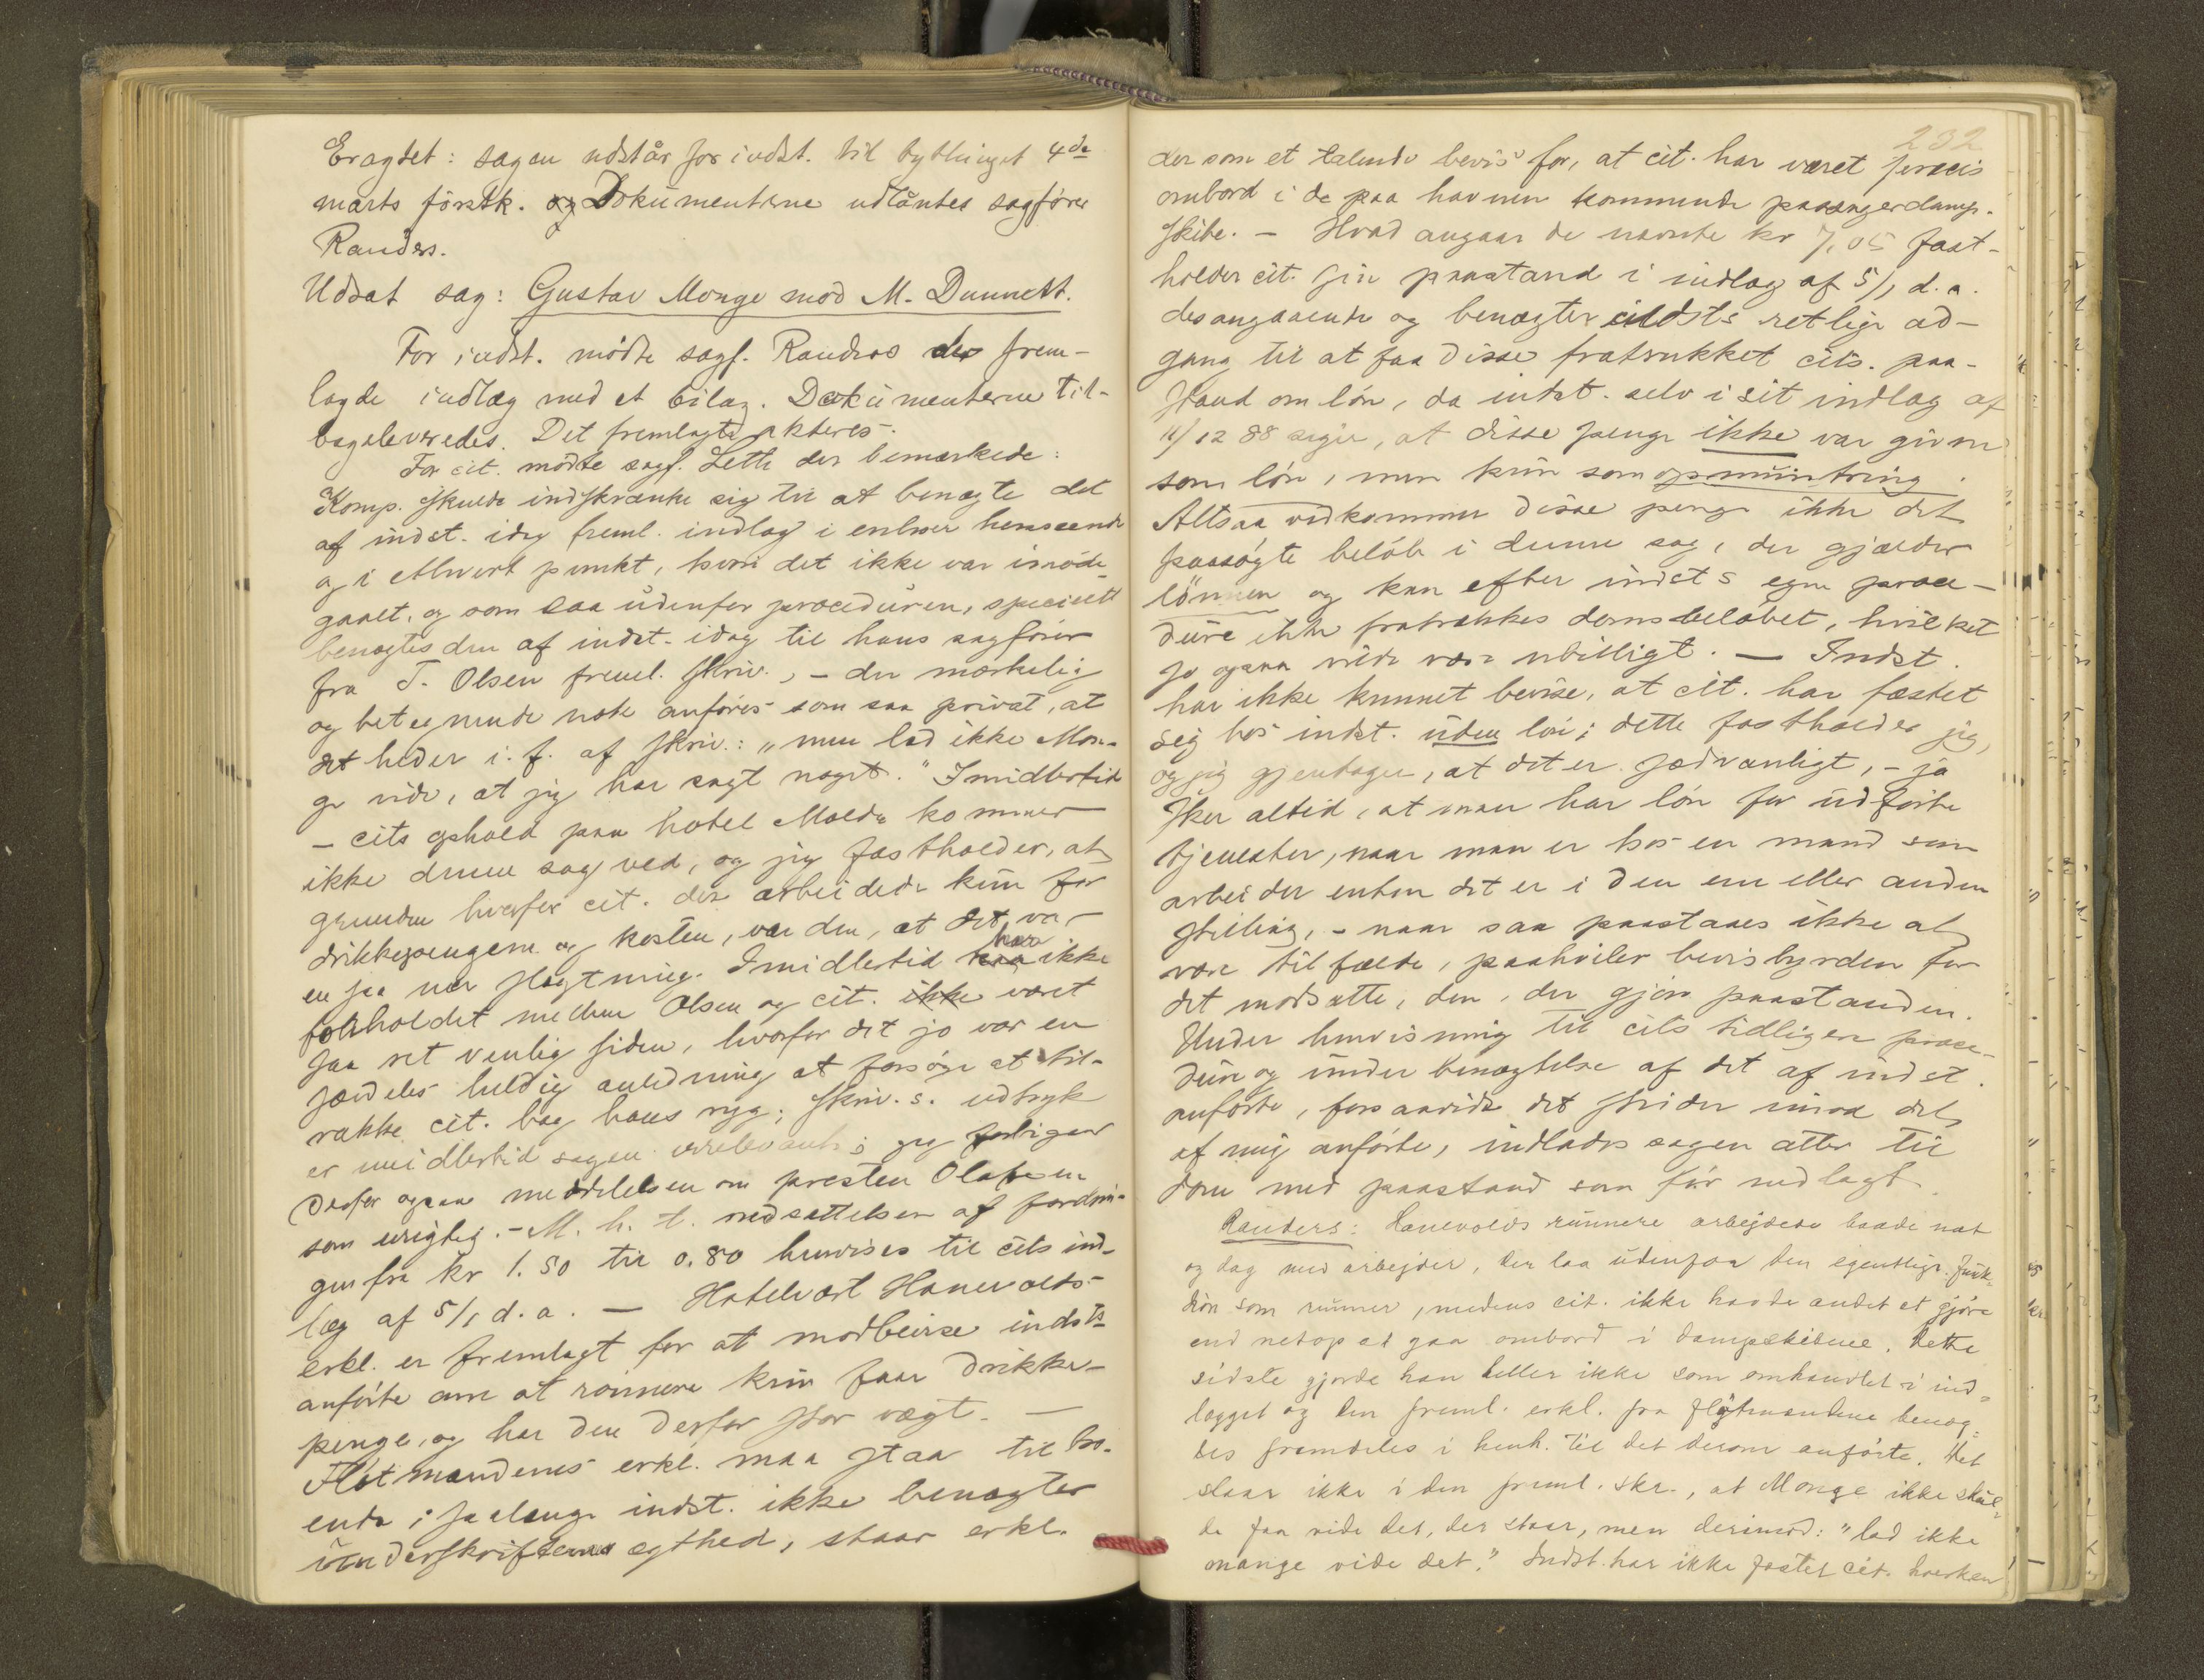 Eragtet: sagen udstår for indst. til bythinget 4de
marts förstk. og Dokumenterne udlåntes sagfører
Randers.
Udsat sag: Gustav Monge mod M. Dunnett.
For indst. mödte sagf. Randers der frem-
lagde indlæg med et bilag. Dokumenterne til-
bageleveredes. Det fremlagte akteres.
For cit. mödte sagf. Leth der bemærkede:
Komp. skulde indskrænke sig til at benægte det
af indst. idag freml. indlæg i enhver henseende
og i ethvert punkt, hvori det ikke var imøde-
gaaet, og som saa udenfor proceduren, specielt
benægtes den af indst. idag til hans sagfører
fra T. Olsen freml. skriv., - den mærkelig
og betegnende note anføres som saa privat, at
det heder i. f. af skriv.: "men lad ikke Mon-
ge vide, at jeg har sagt noget." Imidlertid
- cits ophold paa hotel Molde kommer
ikke denne sag ved, og jeg fastholder, at
grunden hvorfor cit. der arbeidede kun for
drikkepengene og kosten, var den, at det var
en saa nær slægtning. Imidlertid har ikke
forholdet mellem Olsen og cit. ikke været
saa ret venlig siden, hvorfor det jo var en
særdeles heldig anledning at forsøge at til-
rakke cit. bag hans ryg; skriv. s. udtryk
er imidlertid sagen irrelevant; jeg
derfor ogsaa meddelelsen om presten Olafsen
som urigtig. - M. h. t. nedsættelsen af fordrin-
gen fra kr 1.50 til 0.80 henvises til cits ind-
læg af 5/1 d. a. - Hotelvært Hanevolds
erkl. er fremlagt for at modbevise indsts
anførte om at rönnere kun faar drikke-
penge, og har den derfor stor vægt. -
Flötmandenes erkl. maa staa til tro-
ende; saalænge indst. ikke benægter
underskrifternes ægthed, staar erkl.
232
der som et talende bevis for, at cit. har været præcis
ombord i de paa havnen kommende passagerdamp-
skibe. - Hvad angaar de nævnte kr 7,05 fast-
holder cit. sin paastand i indlæg af 5/1 d. a.
desangaaende og benægter indsts retlige ad-
gang til at faa disse fratrukket cits. paa-
stand om lön, da indst. selv i sit indlæg af
11/12 88 siger, at disse penge ikke var givne
som lön, men kun som opmuntring.
Altsaa vedkommer disse penge ikke det
paasögte belöb i denne sag, der gjælder
lönnen og kan efter indsts egen proce-
dure ikke fratrækkes domsbeløbet, hvilket
jo ogsaa vilde være ubilligt. - Indst.
har ikke kunnet bevise, at cit. har fæstet
sig hos indst. uden lön; dette fastholder jeg,
og jeg gjentager, at det er sædvanligt, - ja
sker altid, at man har lön for udförte
tjenester, naar man er hos en mand som
arbeider enten det er i den ene eller anden
stilling, - naar saa paastaaes ikke at
være tilfælde, paahviler bevisbyrden for
det modsatte, den, der gjør paastanden.
Under henvisning til cits tidligere proce-
dure og under benægtelse af det af indst.
anförte, forsaavidt det strider imod det
af mig anförte, indlades sagen atter til
dom med paastand som før nedlagt.
Randers: Hanevolds runnere arbejdede baade nat
og dag med arbejder, der laa udenfor den egentlige funk-
tion som runner, medens cit. ikke havde andet at gjøre
end netop at gaa ombord i dampskibene. Dette
sidste gjorde han heller ikke som omhandlet i ind-
lægget og den freml. erkl. fra flötmændene benæg-
tes fremdeles i henh. til det derom anförte. Det
staar ikke i den freml. skr., at Monge ikke skul-
de faa vide det, der staar, men derimod: "lad ikke
mange vide det." Indst. har ikke fæstet cit. hverken